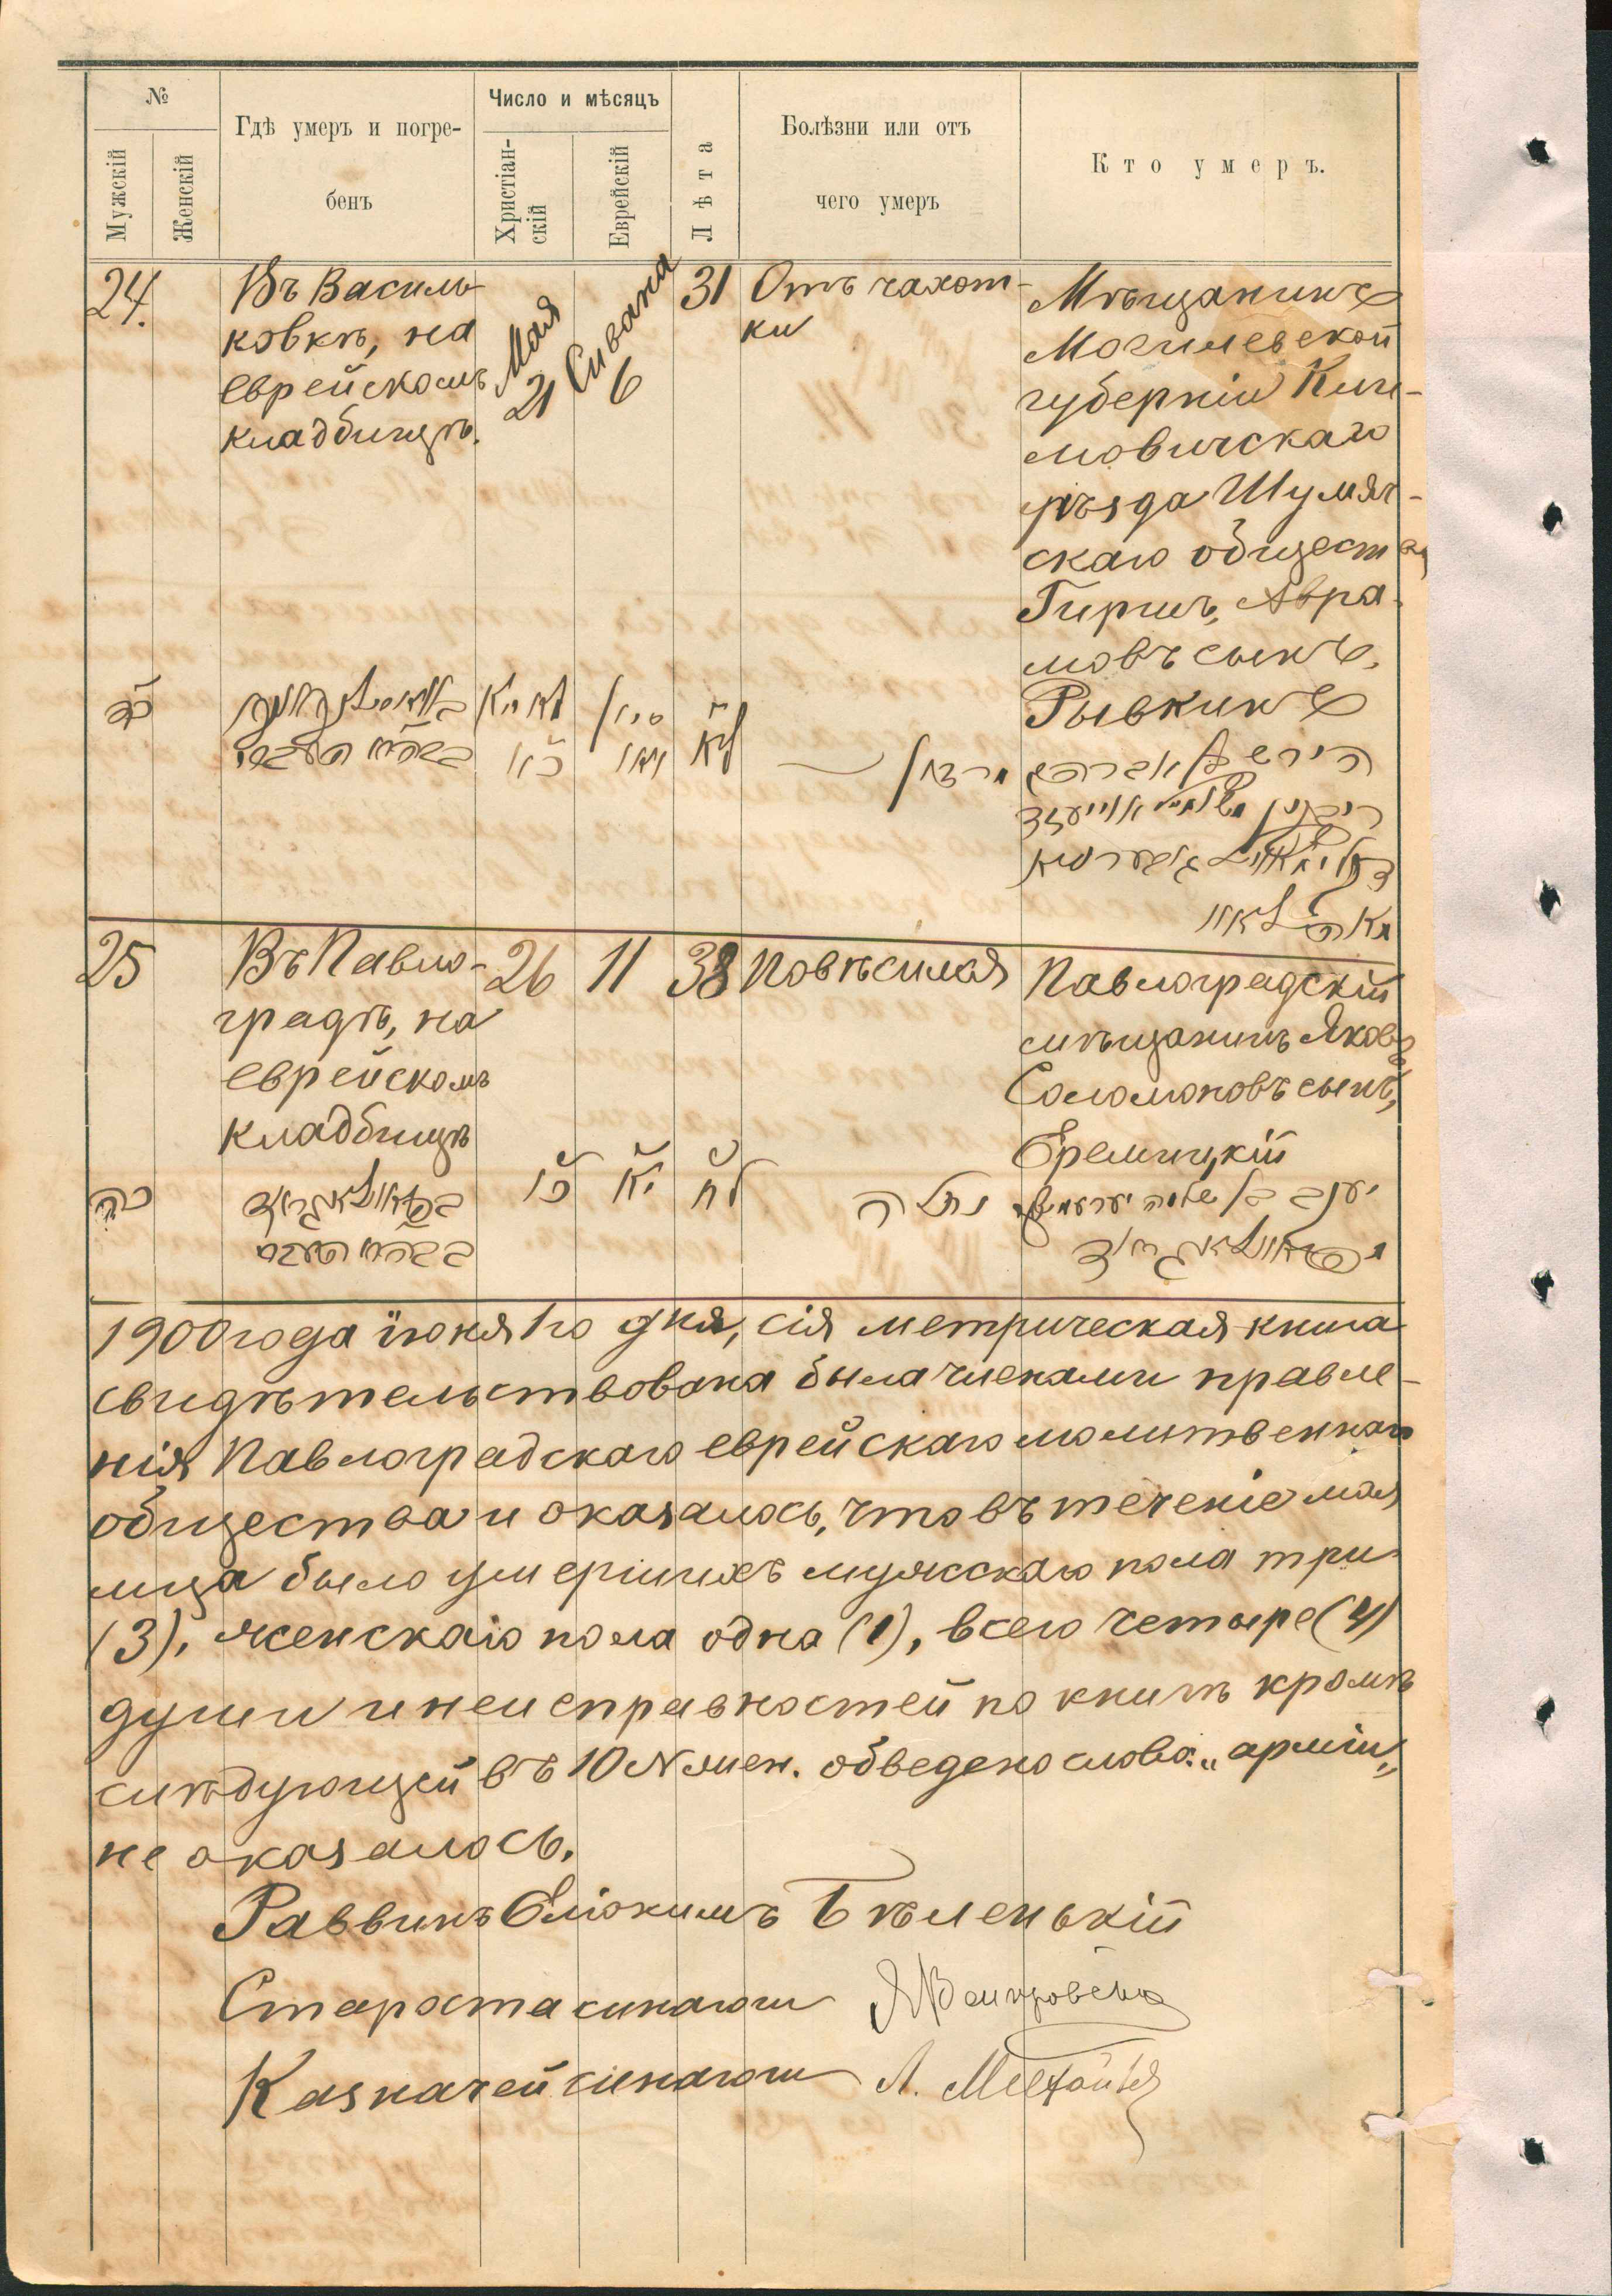 №
Число и мѣсяцъ
Гдѣ умеръ и погре-
бенъ
Болѣзни или отъ
чего умеръ
Кто умеръ.
Мужскій
Женскій
Христіан-
скій
Еврейскій
Лѣта
24.
Въ Василь-
ковкѣ, на
еврейскомъ
кладбищѣ.
Мая
21
Сивана
6
31
Отъ чахот-
ки
Мѣщанинъ
Могилевской
губерніи Кли-
мовичскаго
уѣзда Шумяч-
скаго общества
Гиршъ, Авра-
мовъ сынъ,
Рывкинъ
כד
מאי
כא
סיון
לא
25
Въ Павло-
градѣ, на
еврейскомъ
кладбищѣ
26
11
38
Повѣсился
Павлоградскій
мѣщанинъ Яковъ
Соломоновъ сынъ,
Еремицкій
כה
כו
יא
לח
נתלה
יעקב בן שלמה
1900 года іюня 1го дня, сія метрическая книга
свидѣтельствована была членами правле-
нія Павлоградскаго еврейскаго молитвеннаго
общества и оказалось, что въ теченіе мая
м-ца было умершихъ мужскаго пола три
(3), женскаго пола одна (1), всего четыре (4)
души и неисправностей по книгѣ кромѣ
слѣдующей въ 10 № жен. обведено слово: „арміи„
не оказалось.
Раввинъ Еліокимъ Бѣленькій
Староста синагоги
Казначей синагоги Л.